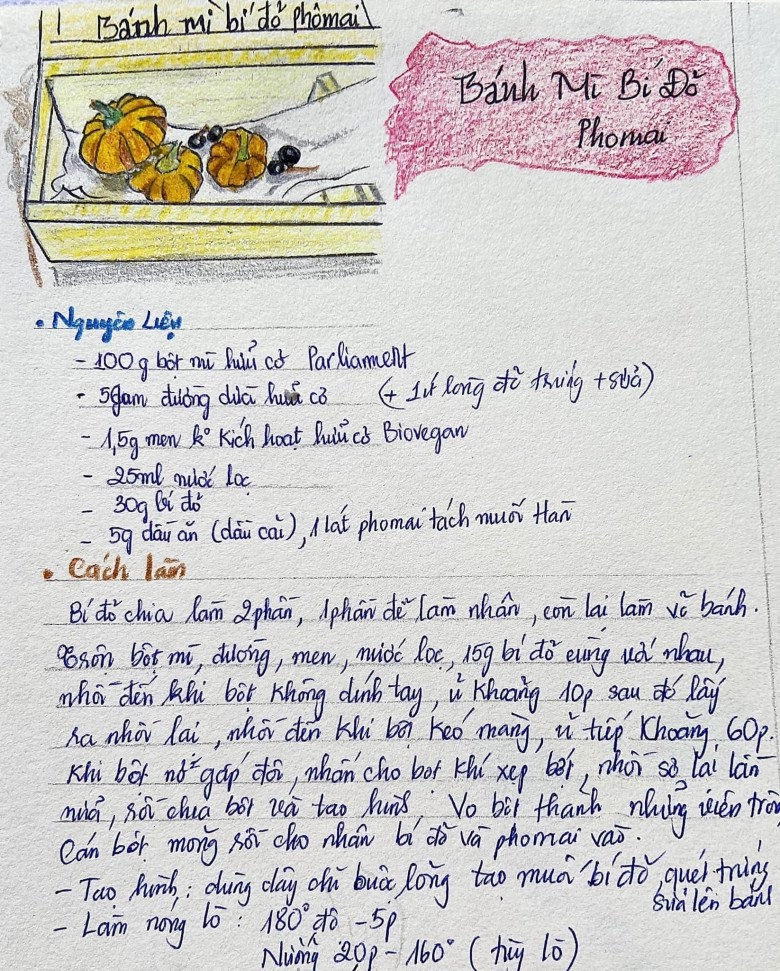 Bánh mì bí đỏ phômai
Bánh Mì Bí Đỏ
Phomai
• Nguyên Liệu
- 100g bột mì hữu cơ Parliament
- 5gam đường dừa hữu cơ (+ 1 ít lòng đỏ trứng + sữa)
- 1,5g men k° kích hoạt hữu cơ Biovegan
- 25ml nước lọc
- 30g bí đỏ
- 5g dầu ăn (dầu cải), 1 lát phomai tách muối Hàn
• Cách làm
Bí đỏ chia làm 2phần, 1phần để làm nhân, còn lại làm vỏ bánh.
Trộn bột mì, đường, men, nước lọc, 15g bí đỏ cùng với nhau,
nhồi đến khi bột không dính tay, ủ khoảng 10p sau đó lấy
ra nhồi lại, nhồi đến khi bột kéo màng, ủ tiếp khoảng 60p.
Khi bột nở gấp đôi, nhấn cho bột khí xẹp bớt, nhồi sơ lại lần
nữa, rồi chia bột và tạo hình. Vo bột thành những viên tròn
Cán bột mỏng rồi cho nhân bí đỏ và phomai vào.
- Tạo hình: dùng dây chỉ buộc lỏng tạo múi bí đỏ, quét trứng
sữa lên bánh
- Làm nóng lò: 180° độ - 5p
Nướng 20p - 160° (tùy lò)